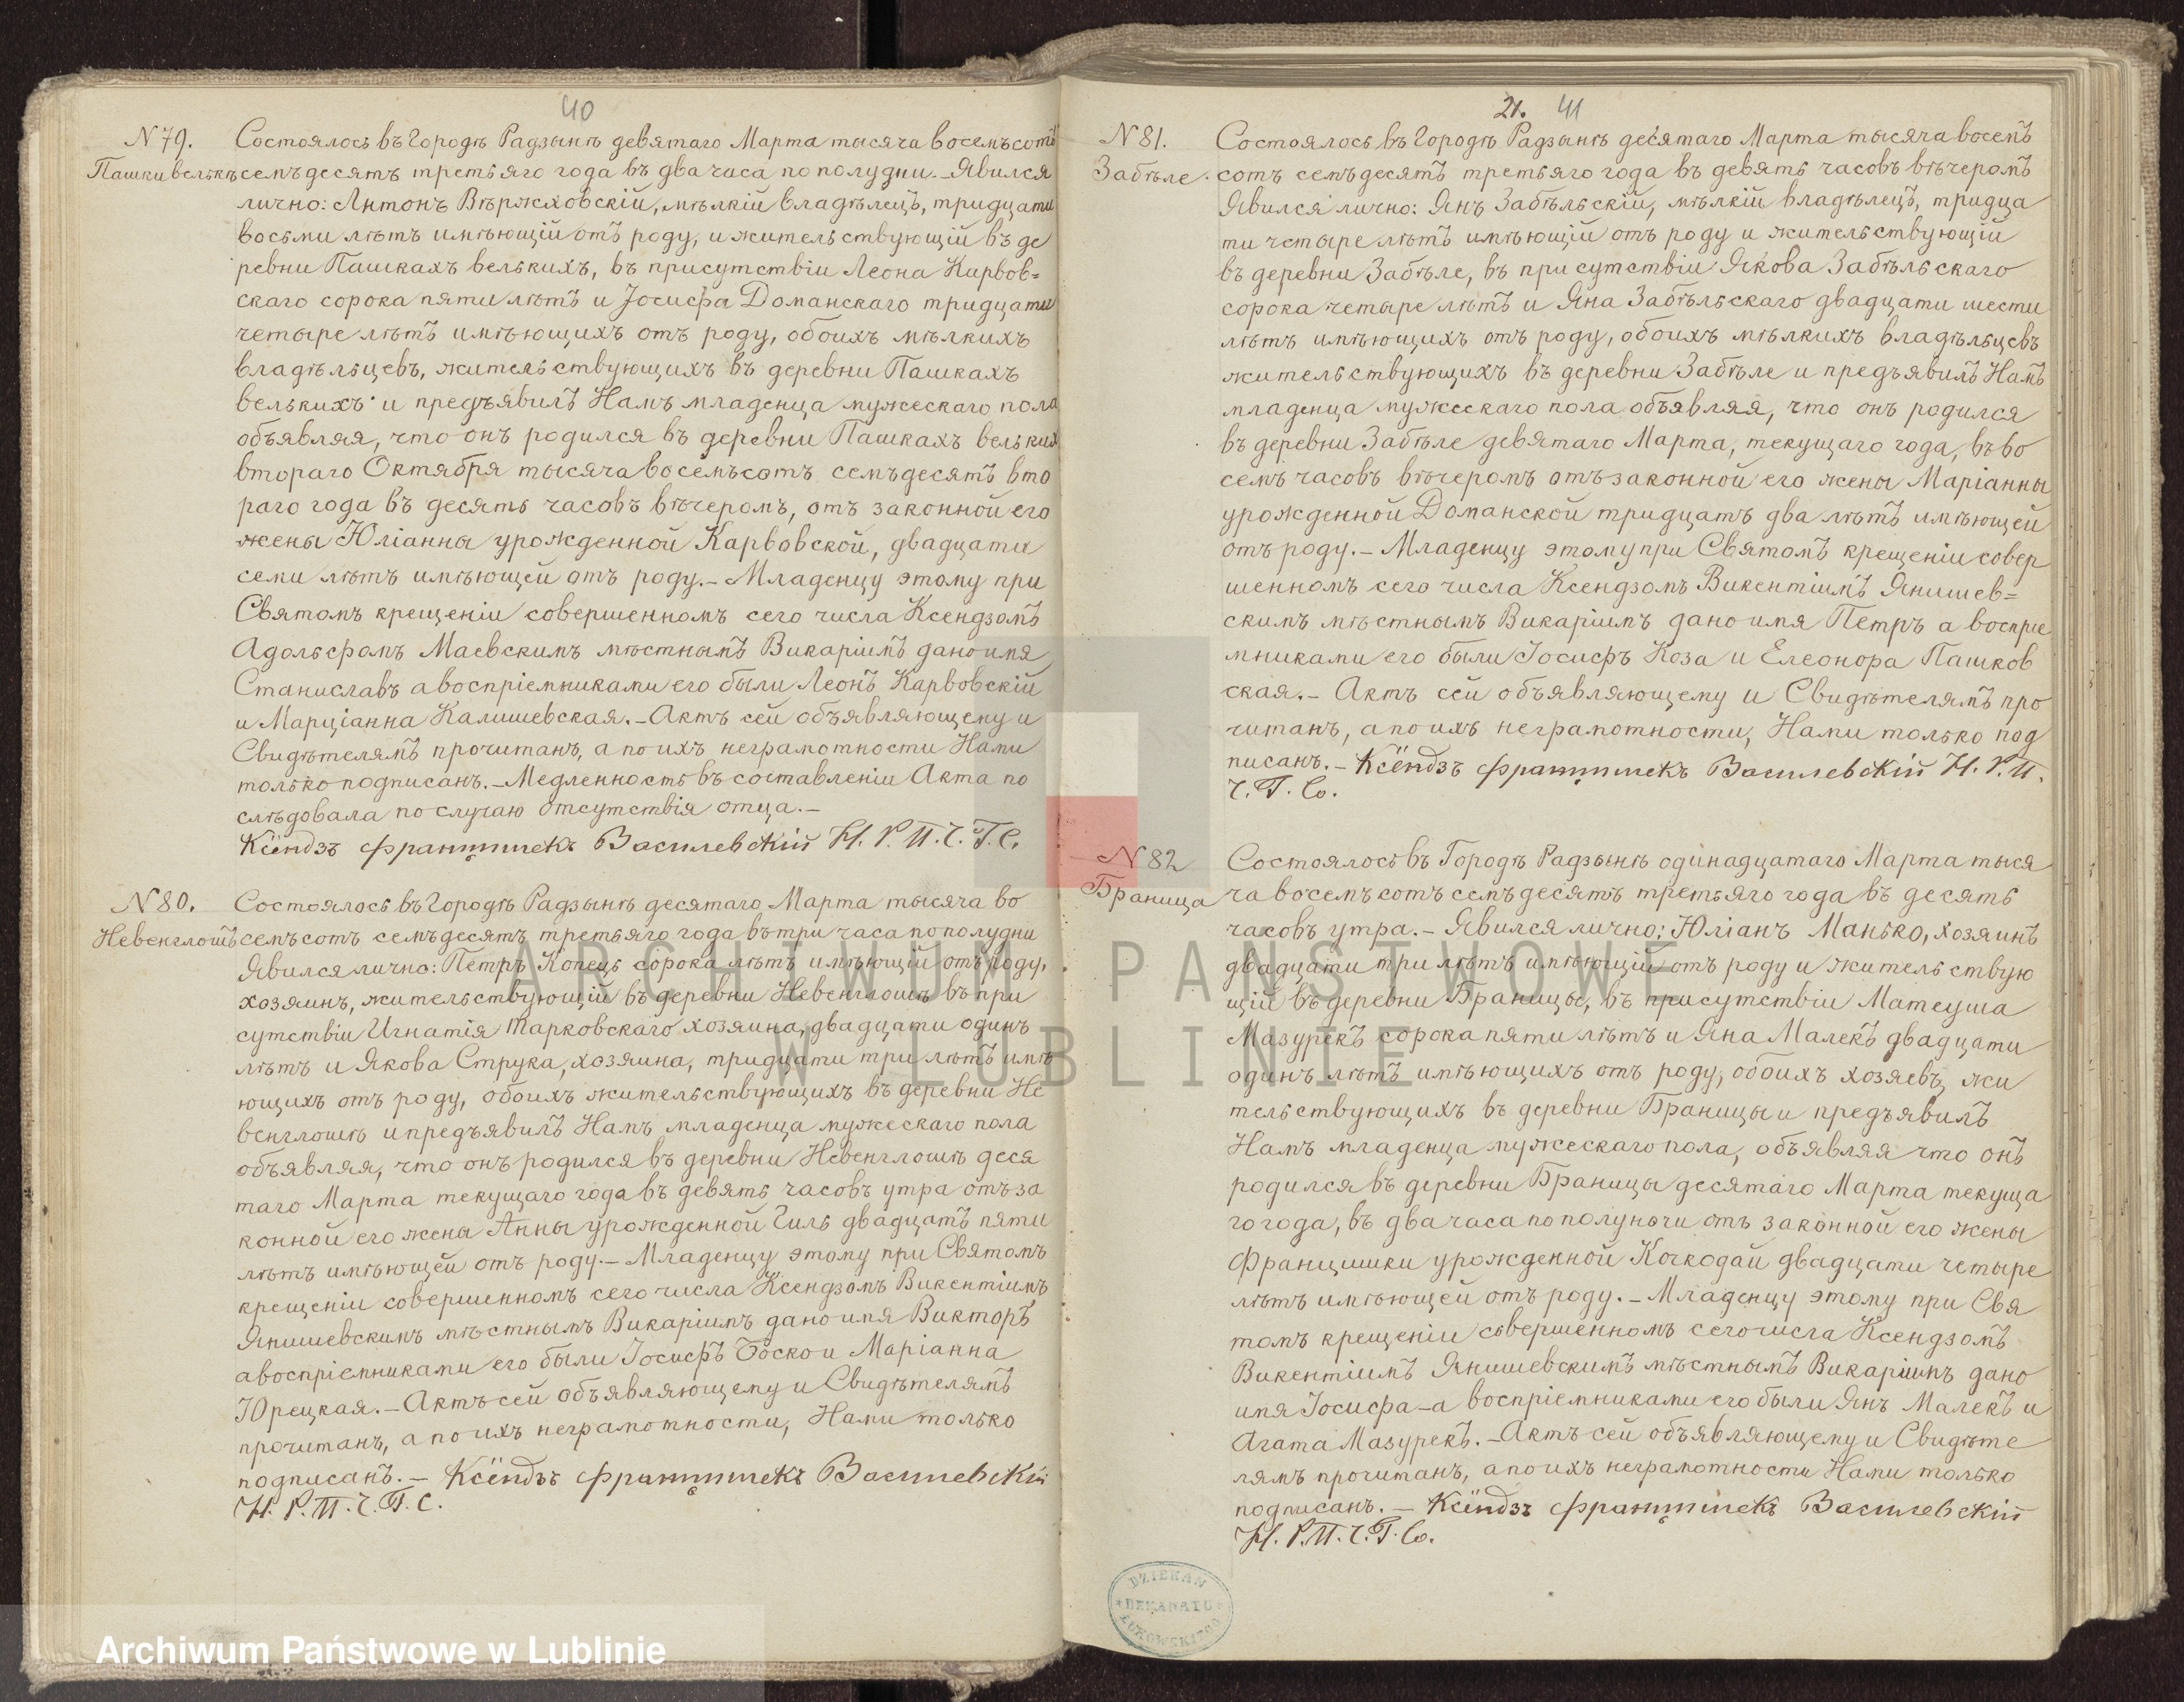 40
N 79.
Пашки велькѣ
Состоялось въ Городѣ Радзынѣ девятаго Марта тысяча восемьсотъ
семьдесятъ третьяго года въ два часа по полудни. – Явился
лично: Антонъ Вѣржховскій, мѣлкій владѣлецъ, тридцати
восьми лѣтъ имѣющій отъ роду, и жительствующій въ де
ревни Пашкахъ велькихъ, въ присутствіи Леона Карвов=
скаго сорока пяти лѣтъ и Іосифа Доманскаго тридцати
четыре лѣтъ имѣющихъ отъ роду, обоихъ мѣлкихъ
владѣльцевъ, жительствующихъ въ деревни Пашкахъ
велькихъ и предъявилъ Намъ младенца мужескаго пола
объявляя, что онъ родился въ деревни Пашкахъ велькихъ
втораго Октября тысяча восемьсотъ семьдесятъ вто
раго года въ десять часовъ вѣчеромъ, отъ законной его
жены Юліанны урожденной Карвовской, двадцати
семи лѣтъ имѣющей отъ роду. – Младенцу этому при
Святомъ крещеніи совершенномъ сего числа Ксендзомъ
Адольфомъ Маевскимъ мѣстнымъ Викаріимъ дано имя
Станиславъ а воспріемниками его были Леонъ Карвовскій
и Марціанна Калишевская. – Актъ сей объявляющему и
Свидѣтелямъ прочитанъ, а по ихъ неграмотности Нами
только подписанъ. – Медленность въ составленіи Акта по
слѣдовала по случаю отсутствія отца. –
Ксёндзъ Францишекъ Василевскій Н. Р. П. Ч. Г. С.
N 80.
Невенглошъ
Состоялось въ Городѣ Радзынѣ десятаго Марта тысяча во
семьсотъ семьдесятъ третьяго года въ три часа по полудни
Явился лично: Петръ Копець сорока лѣтъ имѣющій отъ роду,
хозяинъ, жительствующій въ деревни Невенглошѣ въ при
сутствіи Игнатія Тарковскаго хозяина, двадцати одинъ
лѣтъ и Якова Струка, хозяина, тридцати три лѣтъ имѣ
ющихъ отъ роду, обоихъ жительствующихъ въ деревни Не
венглошѣ и предъявилъ Намъ младенца мужескаго пола
объявляя, что онъ родился въ деревни Невенглошѣ деся
таго Марта текущаго года въ девять часовъ утра отъ за
конной его жены Анны урожденной Гиль двадцатъ пяти
лѣтъ имѣющей отъ роду. – Младенцу этому при Святомъ
крещеніи совершенномъ сего числа Ксендзомъ Викентіимъ
Янишевскимъ мѣстнымъ Викаріимъ дано имя Викторъ
а воспріемниками его были Іосифъ Боско и Маріанна
Юрецкая. – Актъ сей объявляющему и Свидѣтелямъ
прочитанъ, а по ихъ неграмотности, Нами только
подписанъ. – Ксёндзъ Францишекъ Василевскій
Н. Р. П. Ч. Г. С.
21. 41
N 81.
Забѣле.
Состоялось въ Городѣ Радзынѣ десятаго Марта тысяча восемъ
сотъ семьдесятъ третьяго года въ девять часовъ вѣчеромъ
Явился лично: Янъ Забѣльскій, мѣлкій владѣлецъ, тридца
ти четыре лѣтъ имѣющій отъ роду и жительствующій
въ деревни Забѣле, въ присутствіи Якова Забѣльскаго
сорока четыре лѣтъ и Яна Забѣльскаго двадцати шести
лѣтъ имѣющихъ отъ роду, обоихъ мѣлкихъ владѣльцевъ
жительствующихъ въ деревни Забѣле и предъявилъ Намъ
младенца мужескаго пола объявляя, что онъ родился
въ деревни Забѣле девятаго Марта, текущаго года, въ во
семъ часовъ вѣчеромъ отъ законной его жены Маріанны
урожденной Доманской тридцатъ два лѣтъ имѣющей
отъ роду. – Младенцу этому при Святомъ крещеніи совер
шенномъ сего числа Ксендзомъ Викентіимъ Янишев=
скимъ мѣстнымъ Викаріимъ дано имя Петръ а воспріе
мниками его были Іосифъ Коза и Елеонора Пашков
ская. – Актъ сей объявляющему и Свидѣтелямъ про
читанъ, а по ихъ неграмотности, Нами только под
писанъ. – Ксёндзъ Францишекъ Василевскій Н. Р. П.
Ч. Г. С.
N 82
Браница
Состоялось въ Городѣ Радзынѣ одинадцатаго Марта тыся
ча восемьсотъ семьдесятъ третьяго года въ десять
часовъ утра. – Явился лично: Юліанъ Манько, хозяинъ
двадцати три лѣтъ имѣющій отъ роду и жительствую
щій въ деревни Браницы, въ присутствіи Матеуша
Мазурекъ сорока пяти лѣтъ и Яна Малекъ двадцати
одинъ лѣтъ имѣющихъ отъ роду, обоихъ хозяевъ, жи
тельствующихъ въ деревни Браницы и предъявилъ
Намъ младенца мужескаго пола, объявляя что онъ
родился въ деревни Браницы десятаго Марта текуща
го года, въ два часа по полуночи отъ законной его жены
Францишки урожденной Кочкодай двадцати четыре
лѣтъ имѣющей отъ роду. – Младенцу этому при Свя
томъ крещеніи совершенномъ сего числа Ксендзомъ
Викентіимъ Янишевскимъ мѣстнымъ Викаріимъ дано
имя Іосифа – а воспріемниками его были Янъ Малекъ и
Агата Мазурекъ. – Актъ сей объявляющему и Свидѣте
лямъ прочитанъ, а по ихъ неграмотности Нами только
подписанъ. – Ксёндзъ Францишекъ Василевскій
Н. Р. П. Ч. Г. С.
DZIEKAN
DEKANATU
ŁUKOWSKIEGO
ARCHIWUM PAŃSTWOWE
W LUBLINIE
Archiwum Państwowe w Lublinie